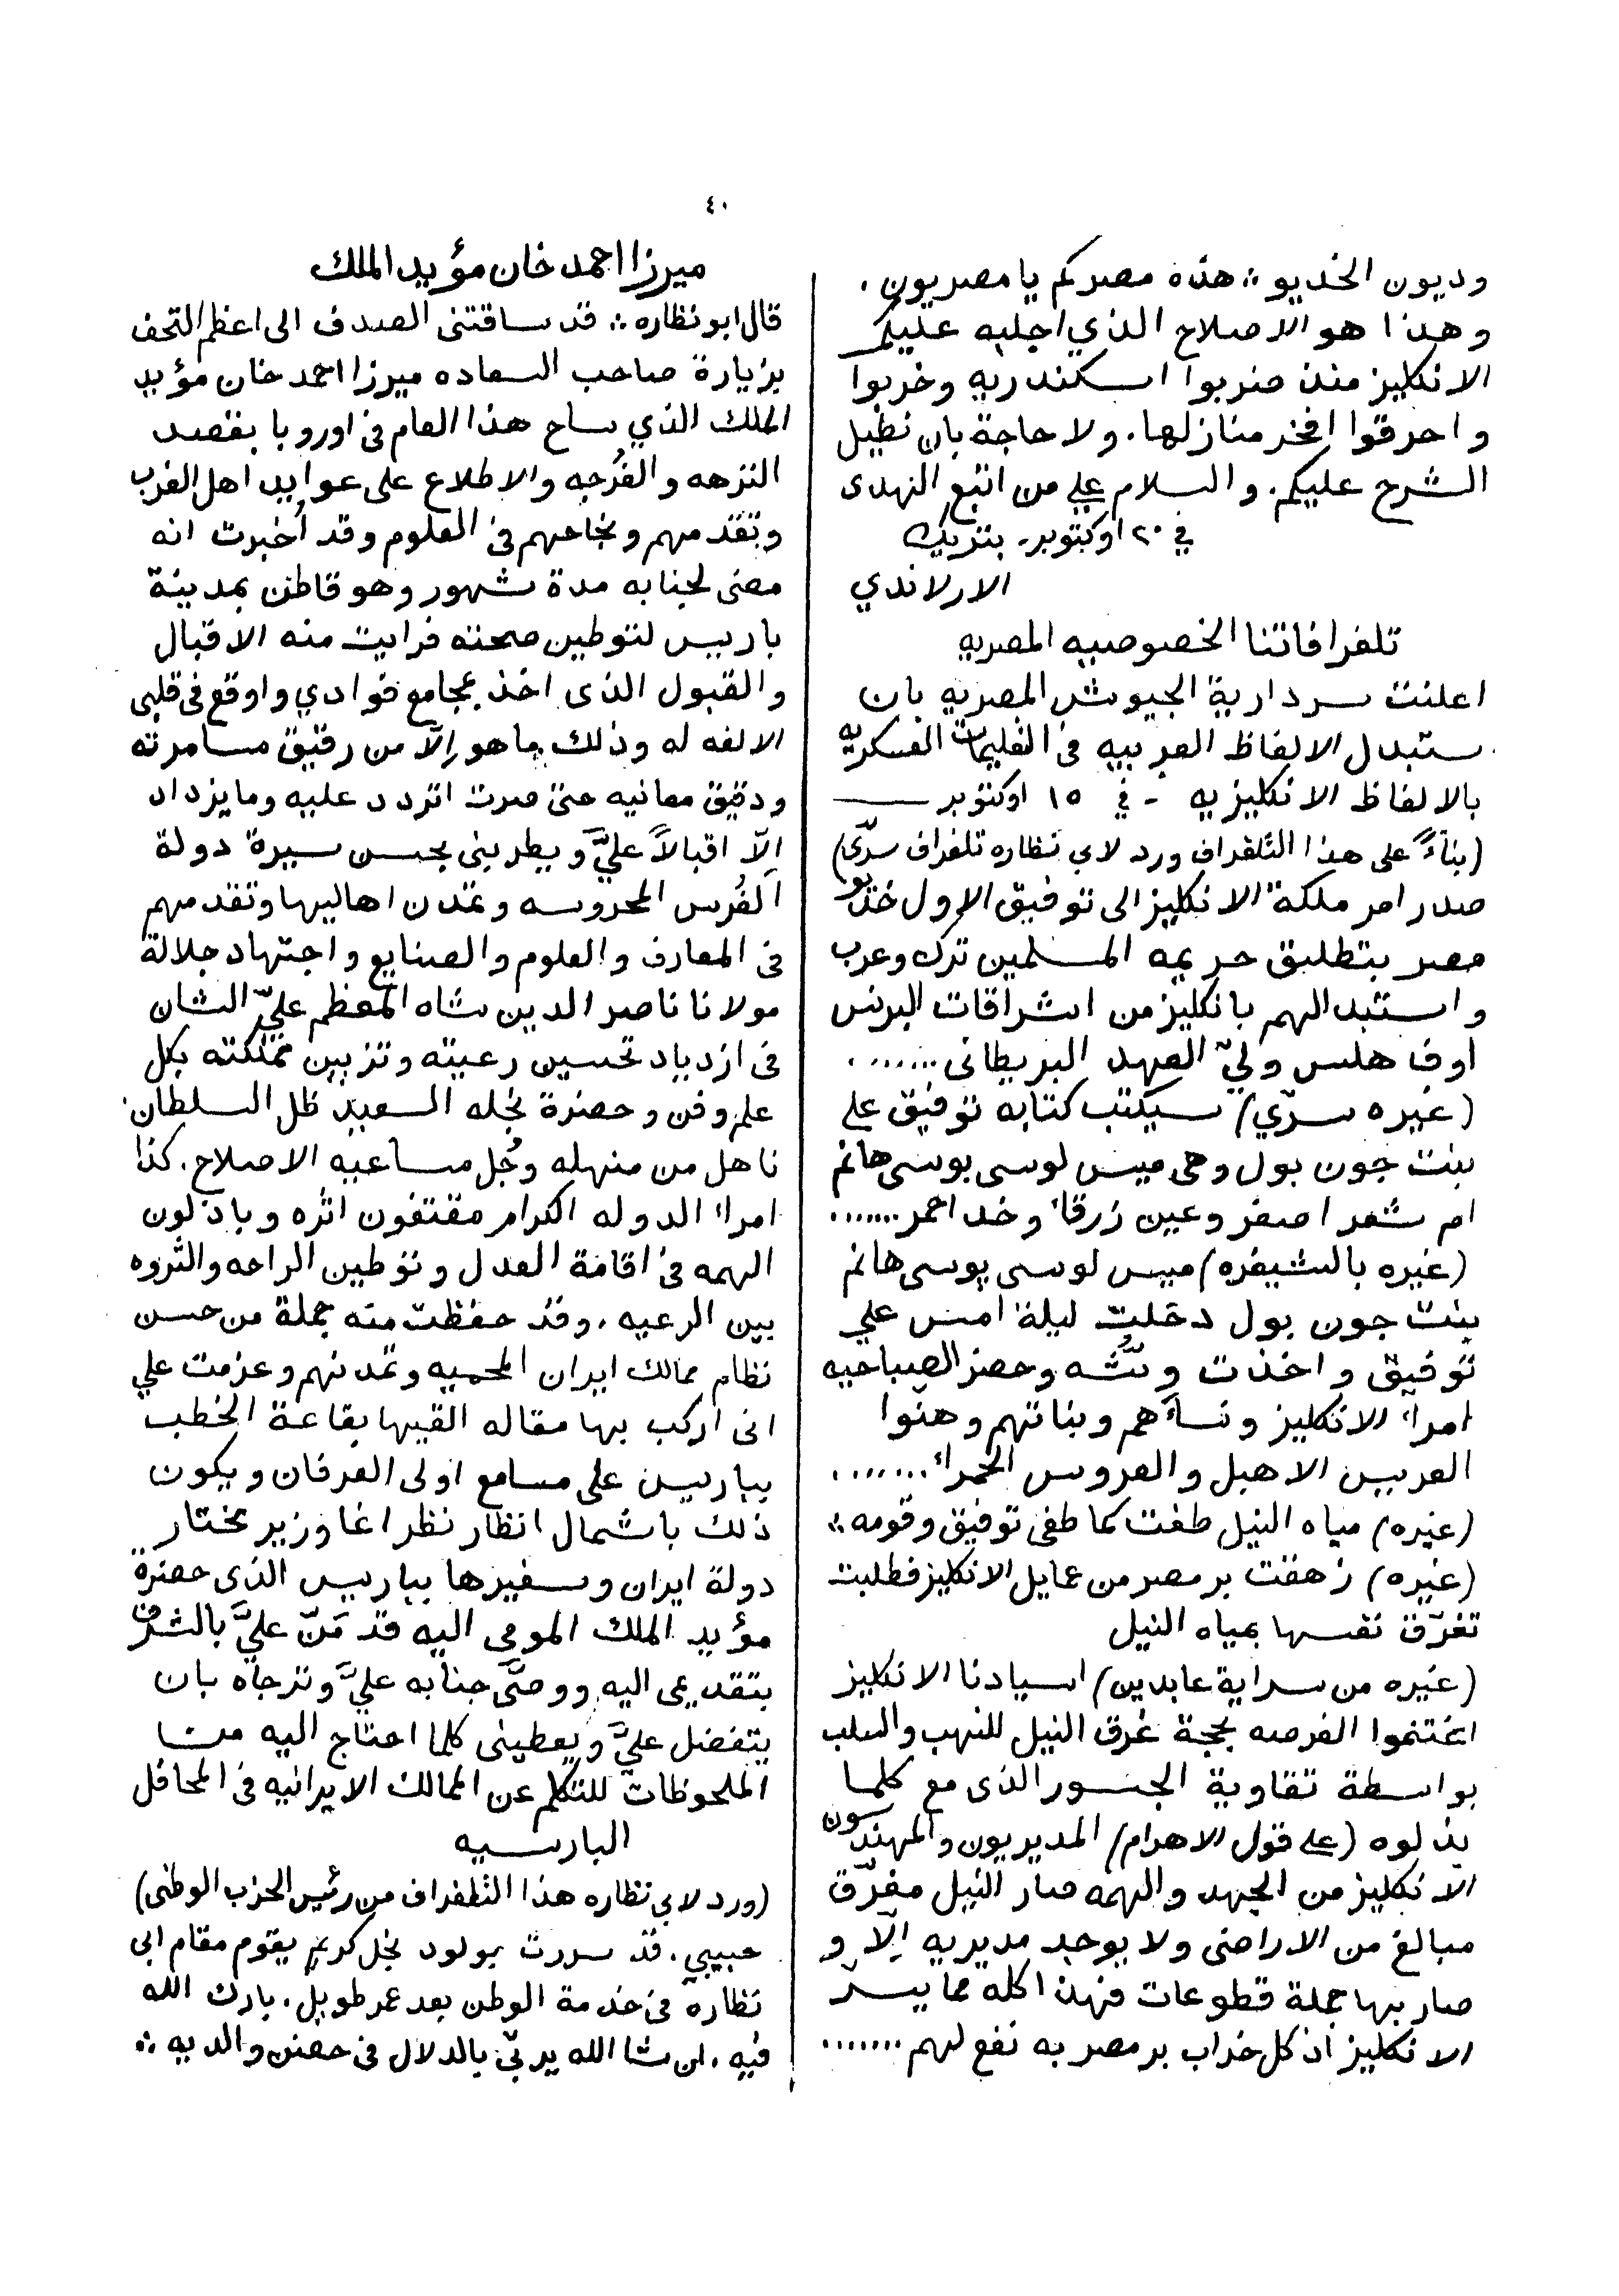 ٤٠
وديون الخديو ؞ هذه مصركم يا مصريون .
وهذا هو الاصلاح الذي اجلبه عليكم
الانكليز منذ ضربوا اسكندريه وخربوا
واحرقوا افخر منازلها . ولا حاجة بان نطيل
الشرح عليكم . والسلام على من اتبع الهدى
في ٢٠ اوكتوبر - بتريك
الارلاندي
تلغرافاتنا الخصوصيه المصريه
اعلنت سردارية الجيوش المصريه بان
ستبدل الالفاظ العربيه فى التعليمات العسكريه
بالالفاظ الانكليزيه - في ١٥ اوكتوبر
(بناءً على هذا التلغراف ورد لابي نظاره تلغراف سرّي)
صدر امر ملكة الانكليز الى توفيق الاول خديو
مصر بتطليق حريمه المسلمين ترك وعرب
واستبدالهم بانكليز من اشراقات البرنس
اوف هلس وليّ العهد البريطانى .......
(غيره سرّي) سيكتب كتابه توفيق على
بنت جون بول وهى ميس لوسى بوسى هانم
ام شعر اصفر وعين زرقاء وخد احمر .......
(غيره بالشيفره) ميس لوسى پوسى هانم
بنت جون بول دخلت ليلة امس علي
توفيق واخذت وشّه وحضر الصباحيه
امراء الانكليز ونساءهم وبناتهم وهنوا
العريس الاهبل والعروس الحمراء .......
(غيره) مياه النيل طفت كما طفى توفيق وقومه ؞
(غيره) زهقت بر مصر من عمايل الانكليز فطلبت
تغرّق نفسها بمياه النيل
(غيره من سراية عابدين) اسيادنا الانكليز
اغتنموا الفرصه بحجة غرق النيل للنهب والسلب
بواسطة تقاوية الجسور الذى مع كلما
بذلوه (على قول الاهرام) المديريون والمهندسون
الانكليز من الجهد والهمه صار النيل مغرّق
مبالغ من الاراضى ولا يوجد مديريه إلّا و
صار بها جملة قطوعات فهذا كله مما يسرّ
الانكليز اذ كل خراب بر مصر به نفع لهم .......
ميرزا احمد خان مؤيد الملك
قال ابو نظاره ؞ قد ساقتنى الصدف الى اعظم التحف
بزيارة صاحب السعاده ميرزا احمد خان مؤيد
الملك الذي ساح هذا العام فى اوروبا بقصد
النزهه والفُرجه والاطلاع على عوايد اهل الغرب
وتقدمهم ونجاحهم فى العلوم وقد أُخبرت انه
مضى لجنابه مدة شهور وهو قاطن بمدينة
باريس لتوطين صحته فرايت منه الاقبال
والقبول الذى اخذ بمجامع فوادي واوقع فى قلبى
الالفه له وذلك ما هو إلّا من رقيق مسامرته
ودقيق معانيه حتى صرت اتردد عليه وما يزداد
إلّا اقبالاً عليَّ ويطربنى بحسن سيرة دولة
الفُرس المحروسه وتمدن اهاليها وتقدمهم
فى المعارف والعلوم والصنايع واجتهاد جلالة
مولانا ناصر الدين شاه المعظم عليّ الشان
فى ازدياد تحسين رعيته وتزيين مملكته بكل
علم وفن وحضرة نجله السعيد ظل السلطان
ناهل من منهله وجُل مساعيه الاصلاح . كذا
امراء الدوله الكرام مقتفون اثره وباذلون
الهمه فى اقامة العدل وتوطين الراحه والثروه
بين الرعيه . وقد حفظت منه جملة من حسن
نظام ممالك ايران المحميه وتمدنهم وعزمت علي
انى اركب بها مقاله القيها بقاعة الخطب
بباريس على مسامع اولى العرفان ويكون
ذلك باشمال انظار نظر اغا وزير مختار
دولة ايران وسفيرها بباريس الذى حضرة
مؤيد الملك المومى اليه قد مَنّ عليَّ بالشرف
بتقديمى اليه ووصَّى جنابه عليَّ وترجاه بان
يتفضل عليَّ ويعطينى كلما احتاج اليه من
الملحوظات للتكلم عن الممالك الايرانيه فى المحافل
الباريسيه
(ورد لابي نظاره هذا التلغراف من رئيس الحزب الوطنى)
حبيبي . قد سررت بمولود نجل كريم يقوم مقام ابى
نظارة فى خدمة الوطن بعد عمر طويل . بارك الله
فيه . ان شا الله يربّي بالدلال فى حضن والديه ؞